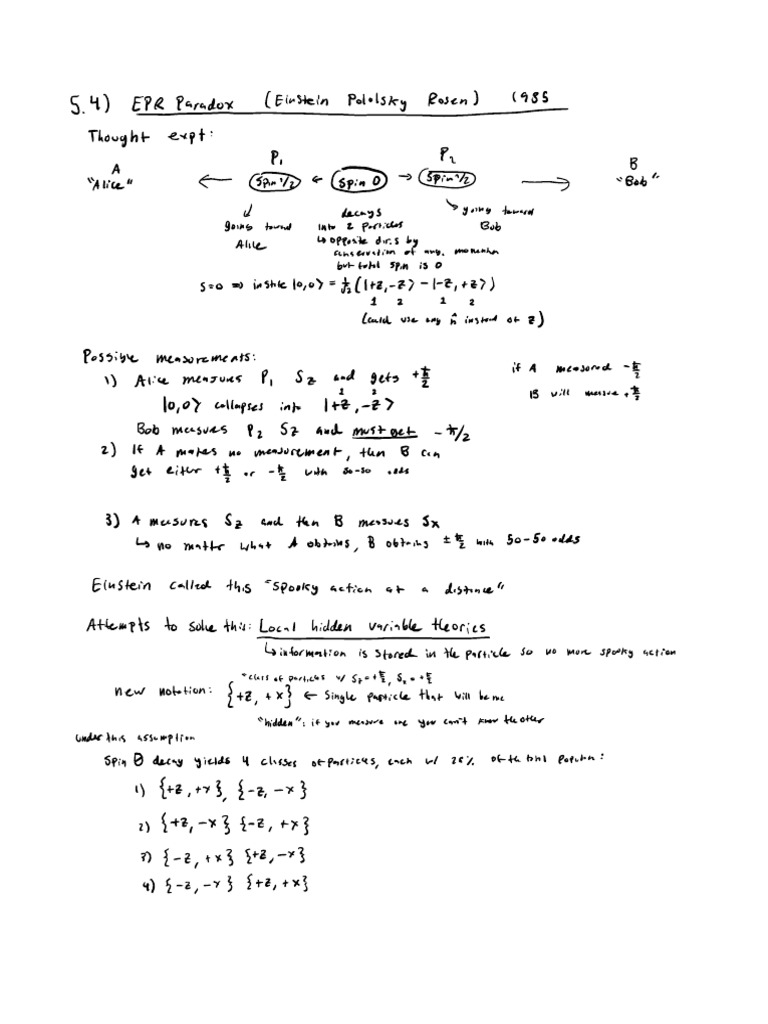 5.4) EPR Paradox (Einstein Pololsky Rosen) 1985
Thought expt:
P₁ P₂
A B
"Alice" ← (Spin 1/2) ← (Spin 0) → (Spin 1/2) → "Bob"
going toward Alice
decays into 2 particles
↳ opposite dir.s by
conservation of ang. momentum
but total spin is 0
going toward Bob
S=0 ⟹ initstate |0,0⟩ = 1/√2 (|+z,-z⟩ - |-z,+z⟩)
1 2 1 2
(could use any n̂ instead of z)
Possible measurements:
1) Alice measures P₁ Sz and gets +ħ/2
if A measured -ħ/2
B will measure +ħ/2
1 2
|0,0⟩ collapses into |+z,-z⟩
Bob measures P₂ Sz and must get -ħ/2
2) If A makes no measurement, then B can
get either +ħ/2 or -ħ/2 with 50-50 odds
3) A measures Sz and then B measures Sx
↳ no matter what A obtains, B obtains ±ħ/2 with 50-50 odds
Einstein called this "spooky action at a distance"
Attempts to solve this: Local hidden variable theories
↳ information is stored in the particle so no more spooky action
"class of particles w/ Sz=+ħ/2, Sx=+ħ/2
new notation: {+z, +x} ← Single particle that will be me
"hidden": if you measure one you can't know the other
under this assumption
Spin 0 decay yields 4 classes of particles, each w/ 25% of the total
1) {+z, +x}, {-z, -x}
2) {+z, -x} {-z, +x}
3) {-z, +x} {+z, -x}
4) {-z, -x} {+z, +x}